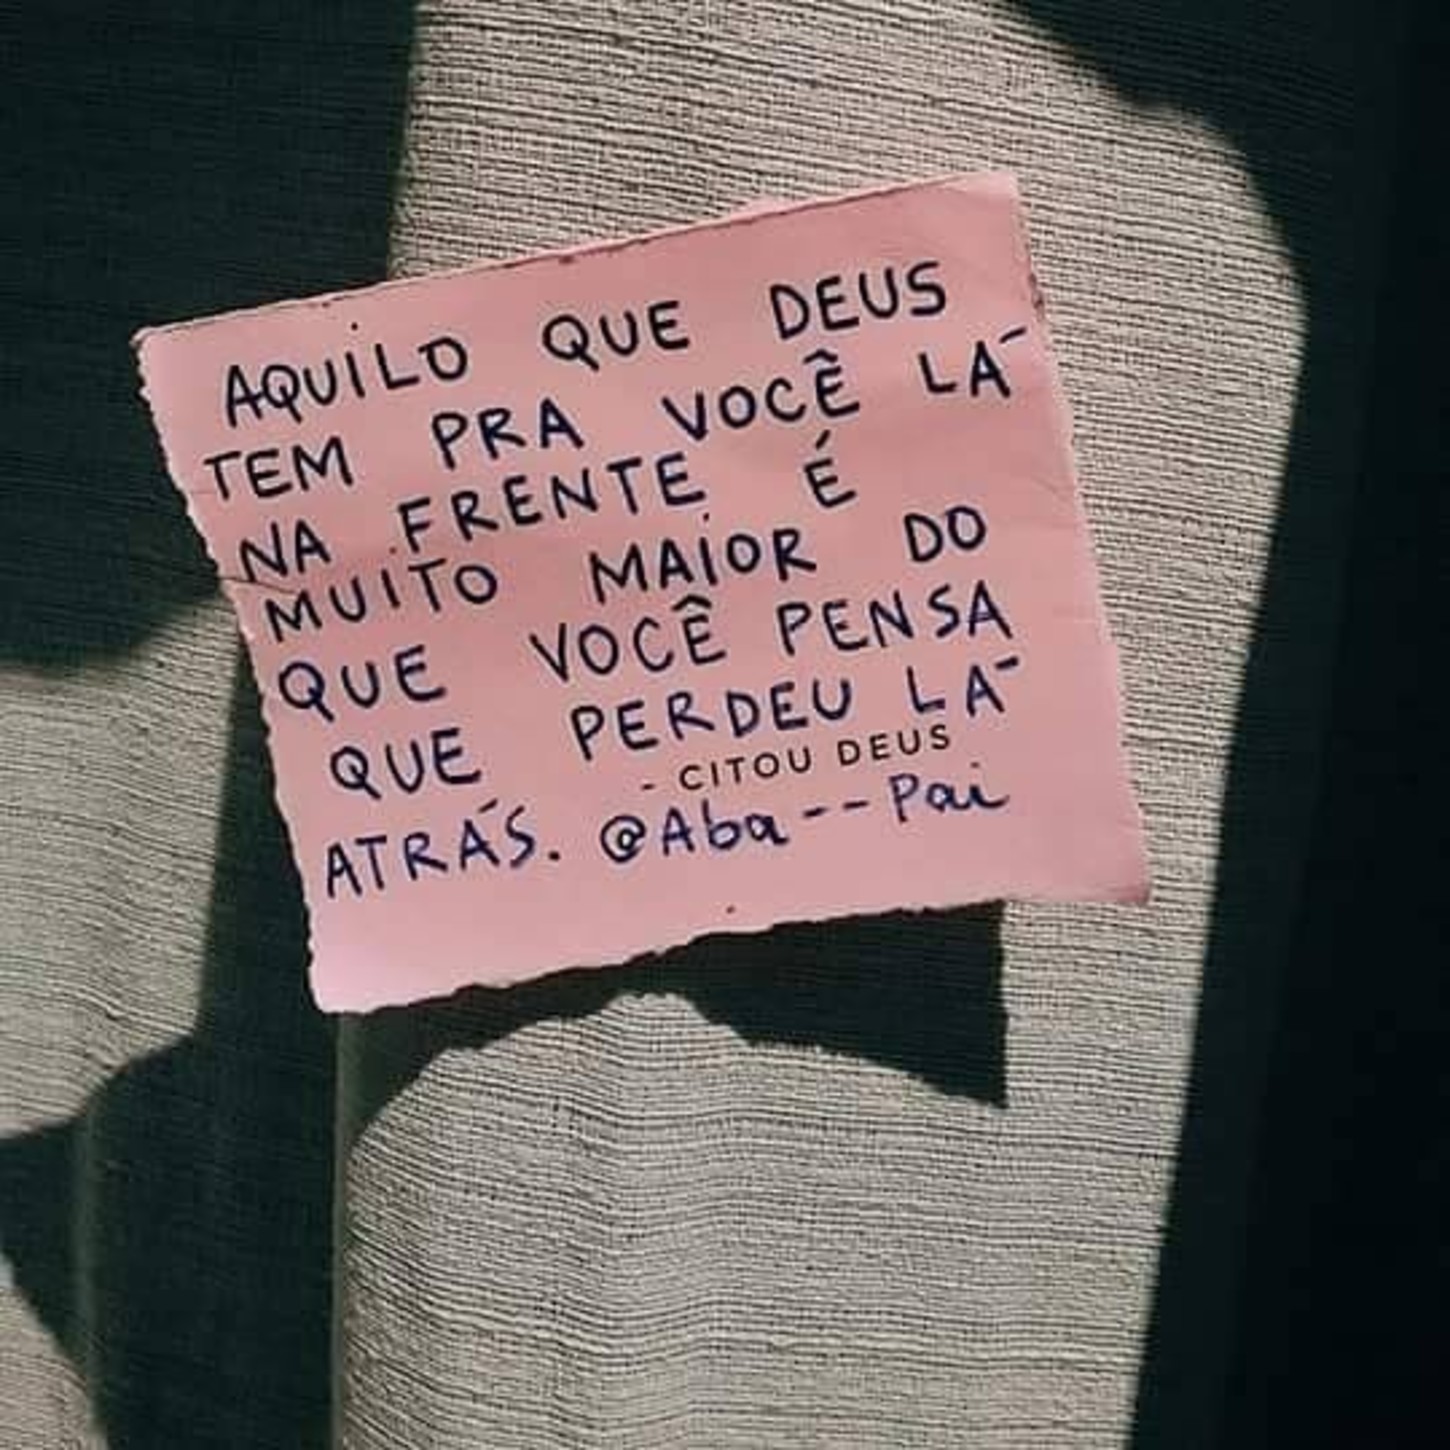 AQUILO QUE DEUS
TEM PRA VOCÊ LÁ
NA FRENTE É
MUITO MAIOR DO
QUE VOCÊ PENSA
QUE PERDEU LÁ
- CITOU DEUS
ATRÁS. @Aba--Pai